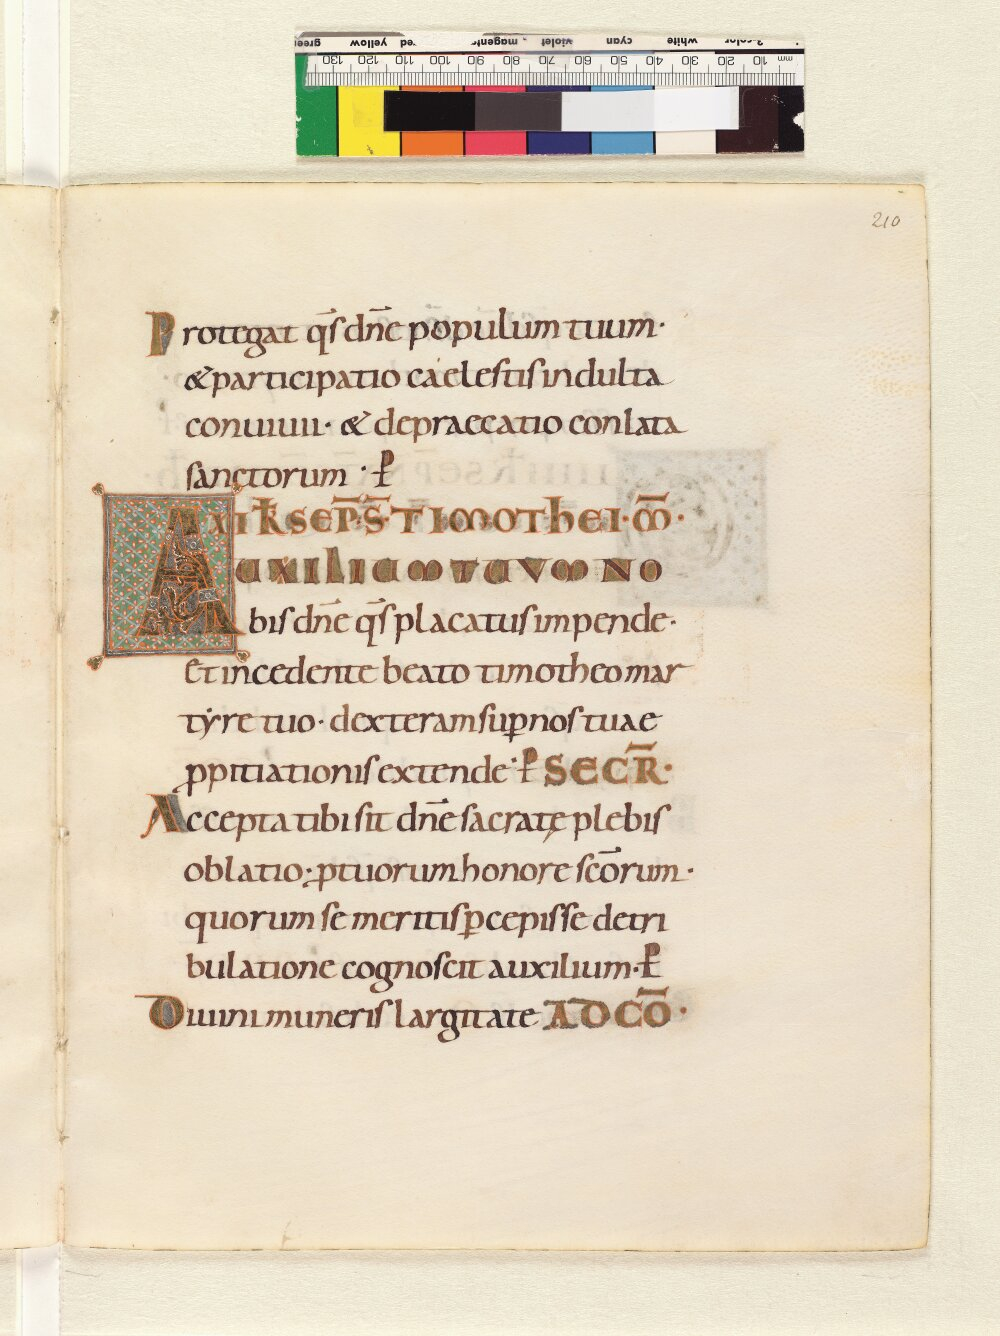 green yellow red magenta violet cyan white 3-color
130 120 110 100 90 80 70 60 50 40 30 20 10 mm
210
Protegat q̄s dn̄e populum tuum·
& participatio caelestis indulta
conuiuii· & depraecatio conlata
sanctorum · P̱
XI K̄ SEP̄· S̄· TIMOTHEI· M̄·
AUXILIUM TUUM NO
bis dn̄e q̄s placatus impende·
Et incedente beato timotheo mar
tyre tuo· dexteram suꝑ nos tuae
ꝓpitiationis extende· P̱ SECR̄·
Accepta tibi sit dn̄e sacratę plebis
oblatio· ꝓ tuorum honore scōrum·
quorum se meritis ꝑcepisse de tri
bulatione cognoscit auxilium· P̱
Diuini muneris largitate AD CŌ·